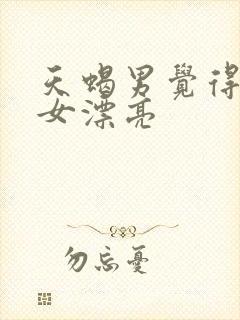 天蝎男覺得
女漂亮
勿忘憂